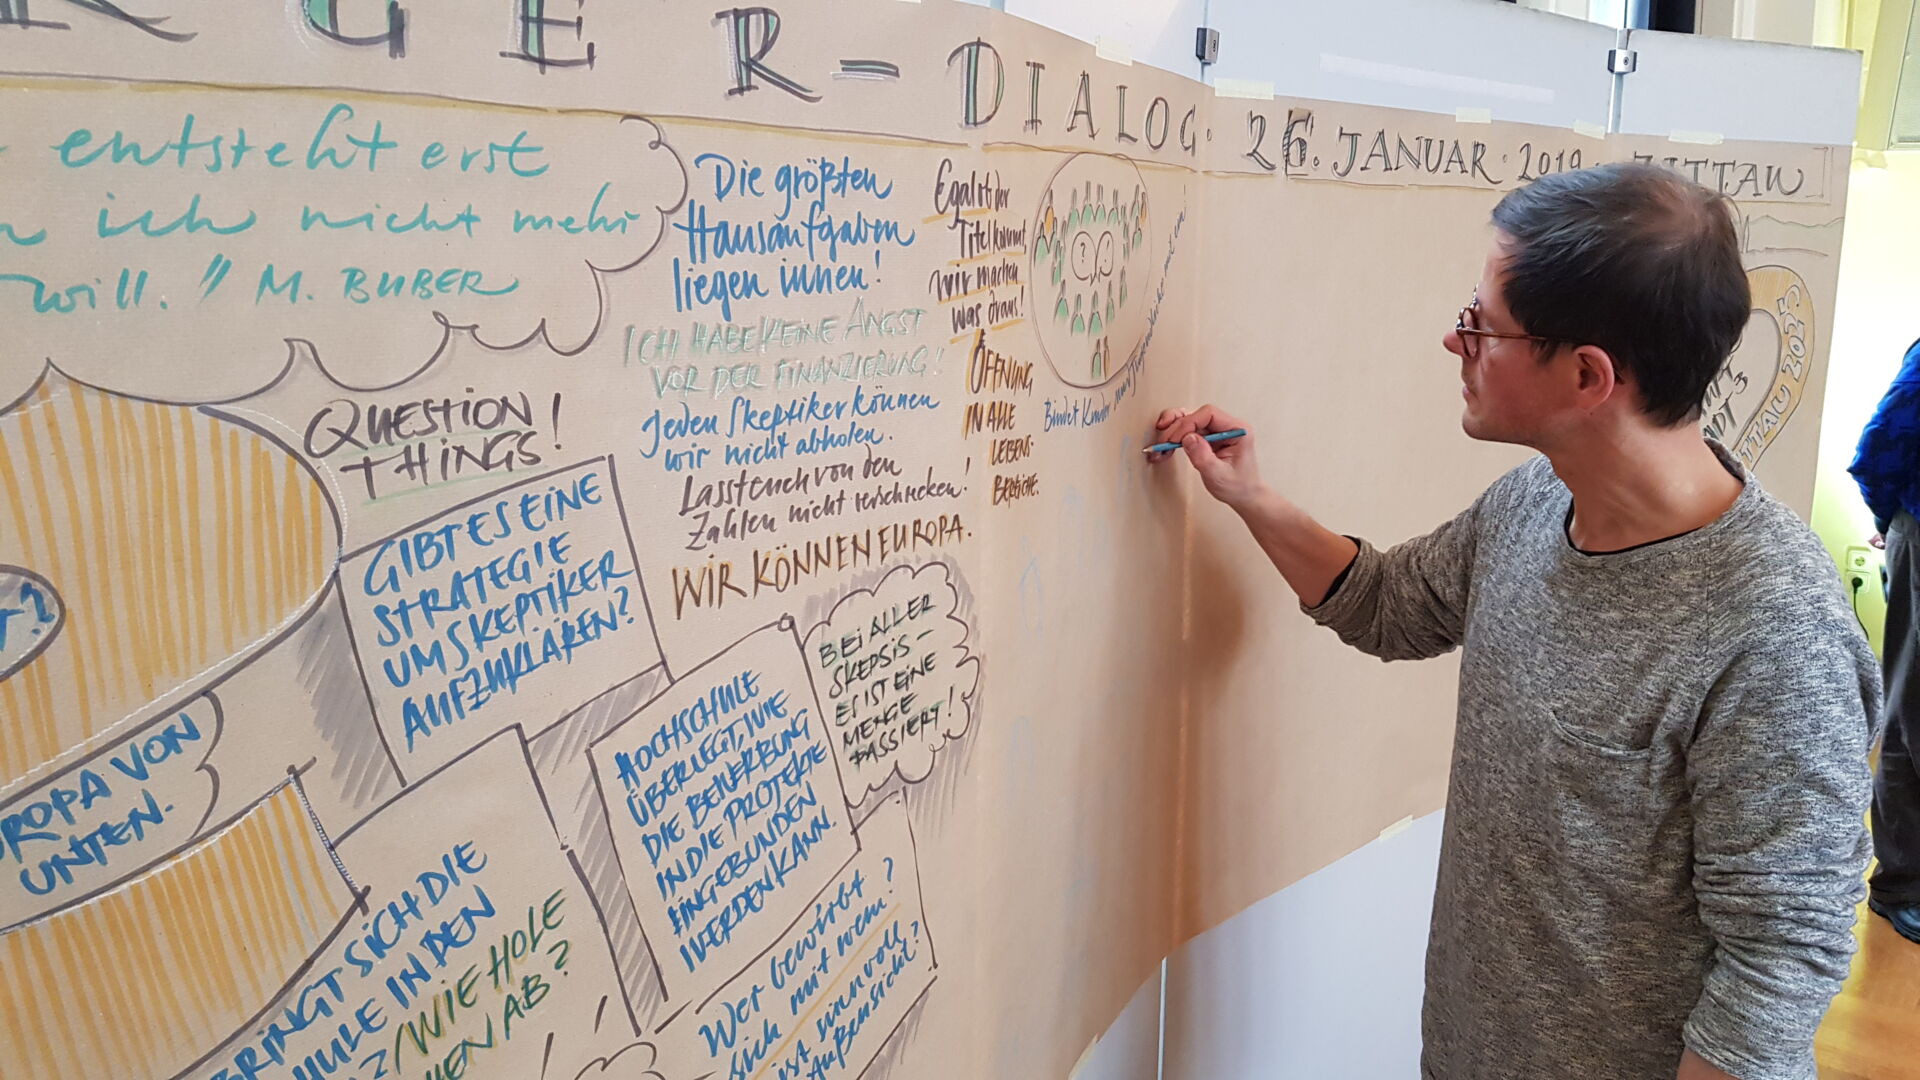 RGER-DIALOG · 26. JANUAR · 2019 · ZITTAU
entsteht erst
ich nicht mehr
will." M. BUBER
Die größten
Hausaufgaben
liegen innen!
ICH HABE KEINE ANGST
VOR DER FINANZIERUNG!
Jeden Skeptiker können
wir nicht abholen.
Lasst euch von den
Zahlen nicht verschrecken!
WIR KÖNNEN EUROPA.
Egal ob der
Titel kommt,
wir machen
was draus!
ÖFFNUNG
IN ALLE
LEBENS-
BEREICHE.
? !
Bindet Kinder und Jugendliche mit ein!
QUESTION
THINGS!
GIBT ES EINE
STRATEGIE
UM SKEPTIKER
AUFZUKLÄREN?
BEI ALLER
SKEPSIS –
ES IST EINE
MENGE
PASSIERT!
HOCHSCHULE
ÜBERLEGT, WIE
DIE BEWERBUNG
IN DIE PROJEKTE
EINGEBUNDEN
WERDEN KANN.
ROPA VON
UNTEN.
BRINGT SICH DIE
HULE IN DEN
/WIE HOLE
EN AB?
Wer bewirbt
sich mit wem?
ist sinnvoll
Außensicht?
ZITTAU 2025